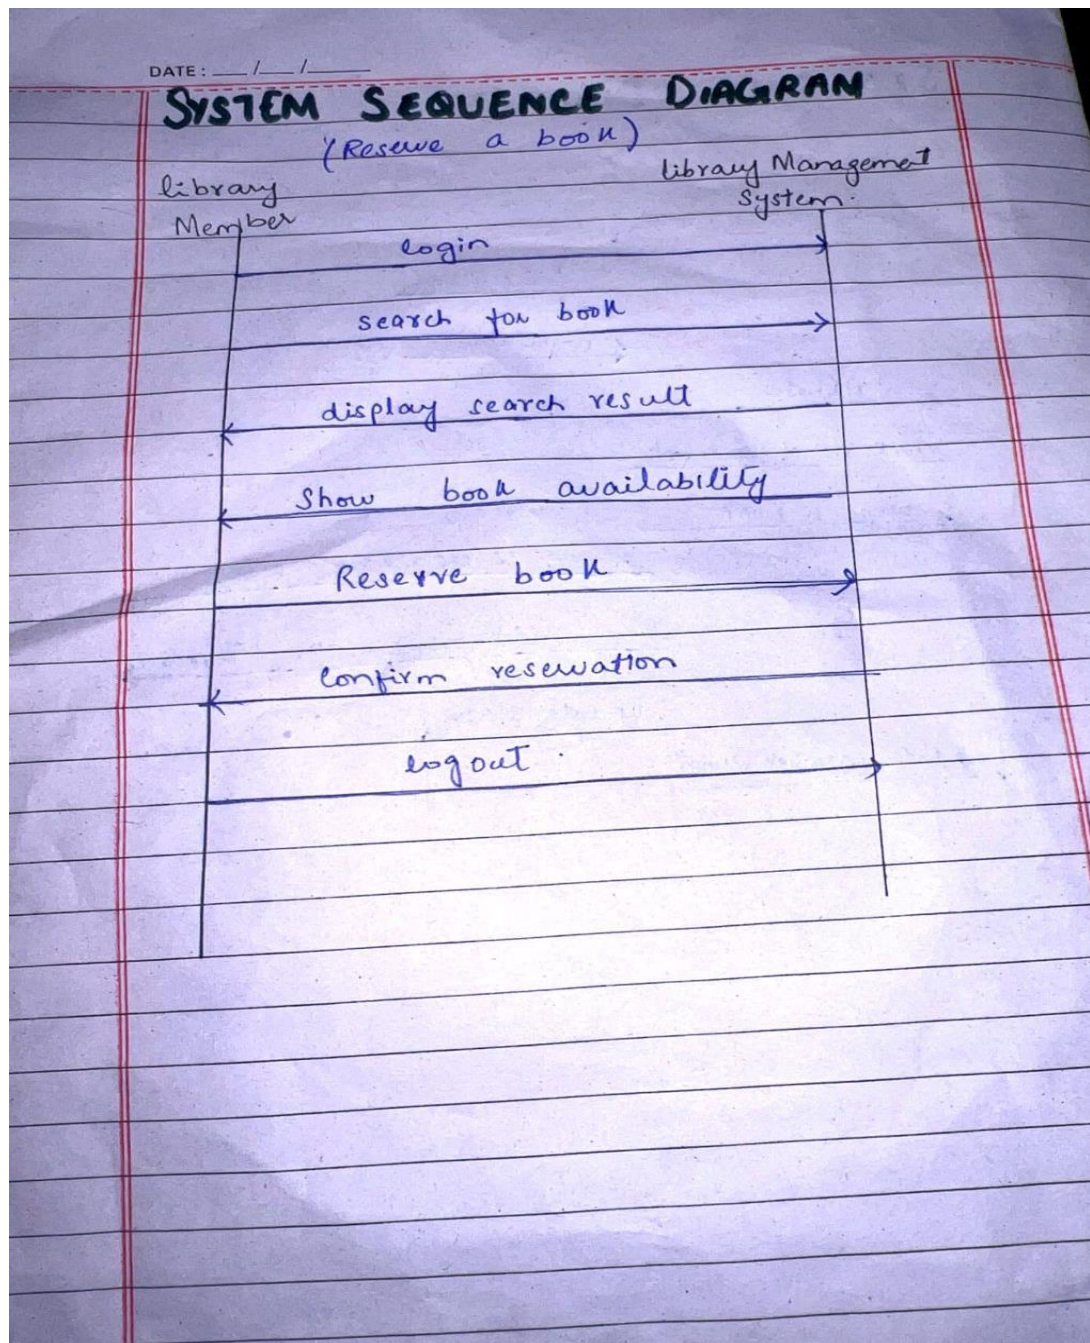 DATE: __/__/____
SYSTEM SEQUENCE DIAGRAM
(Reserve a book)
library Managemet
library
System.
Member
login
search for book
display search result
Show book availability
Reserve book
Confirm reservation
logout